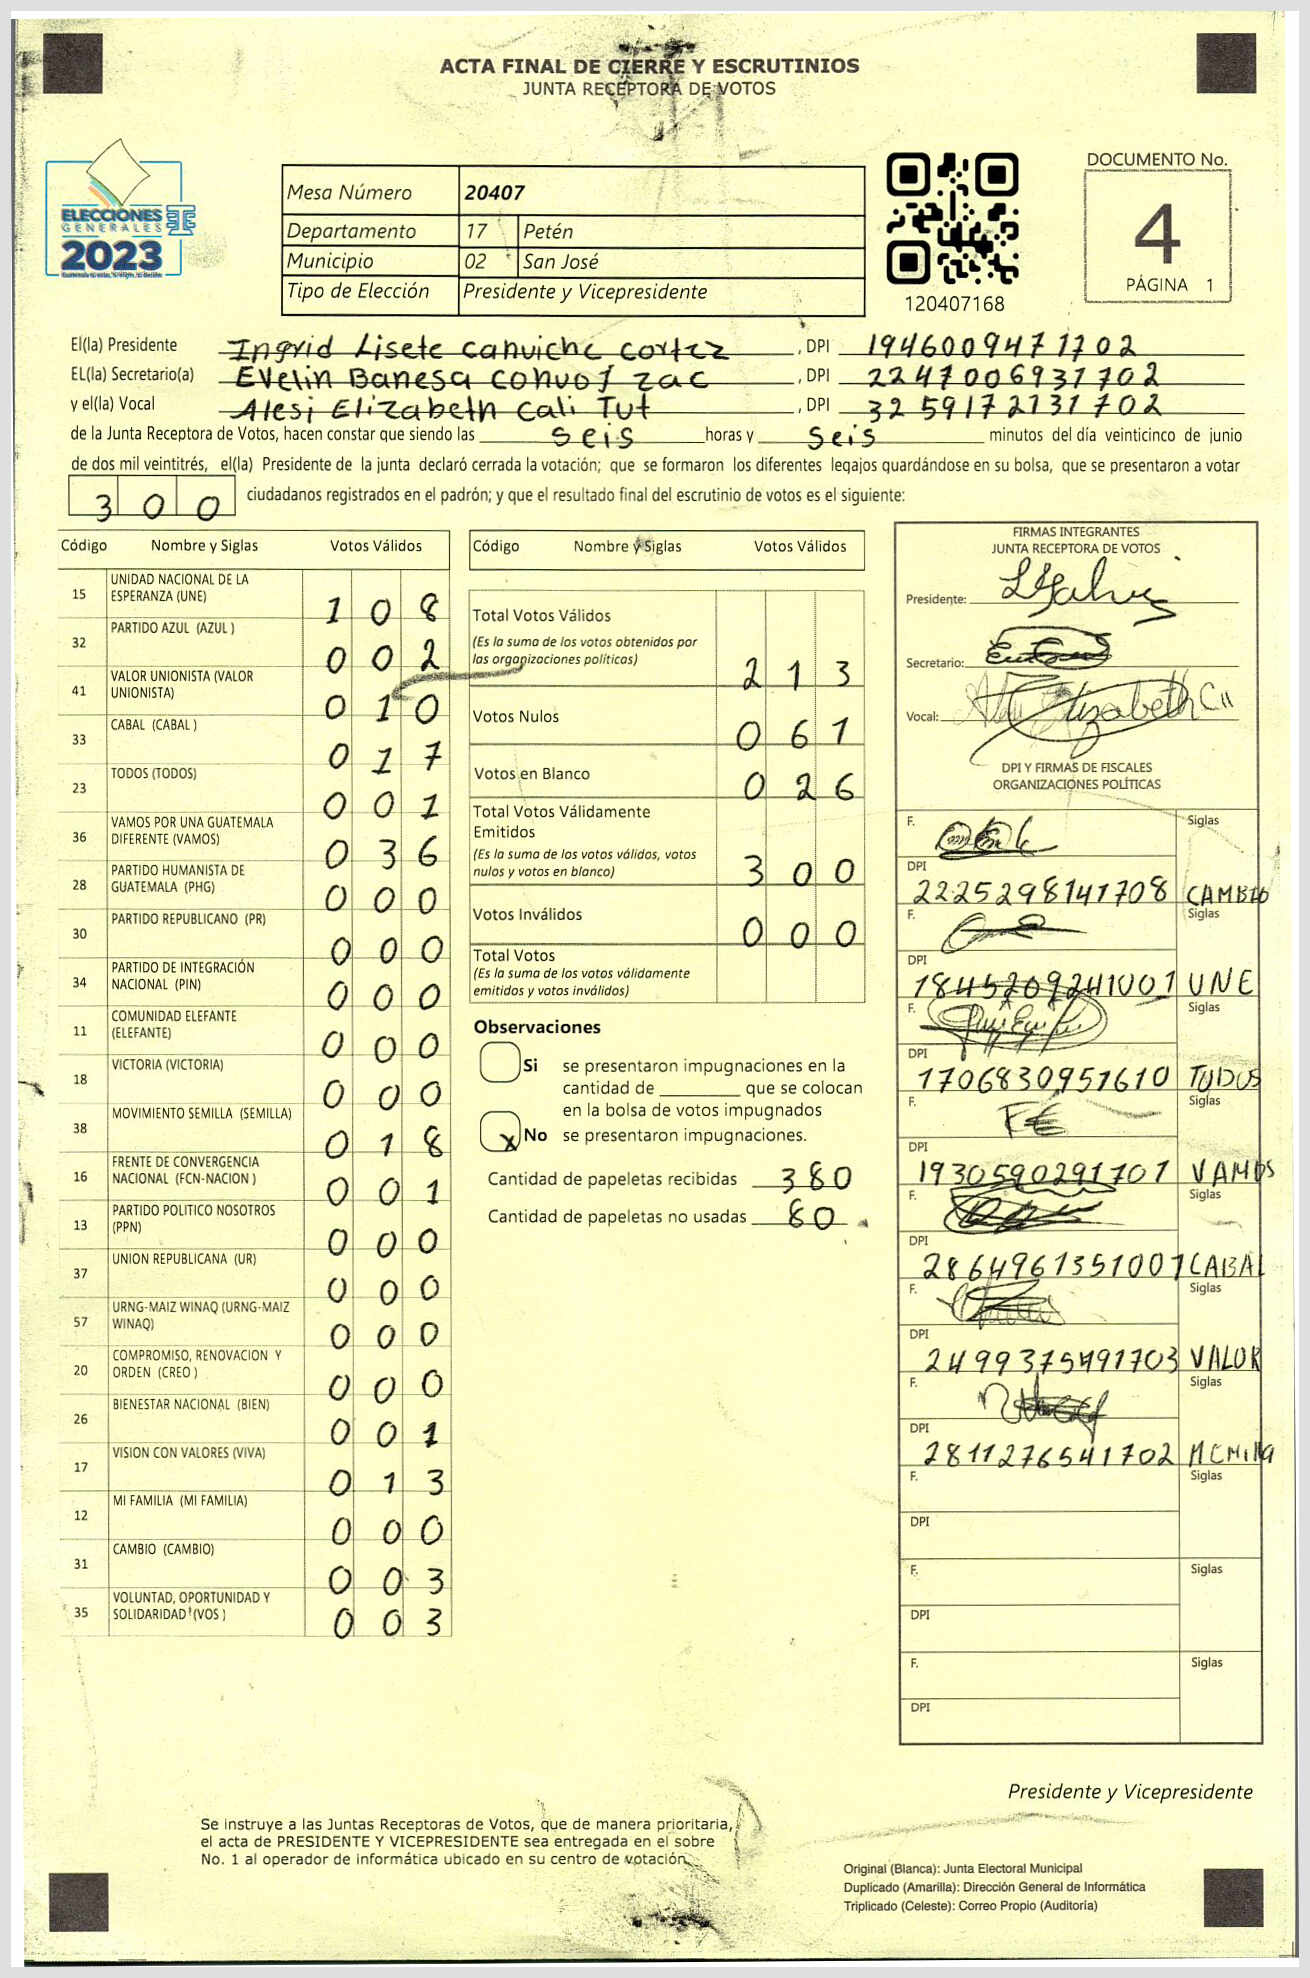 ACTA FINAL DE CIERRE Y ESCRUTINIOS
JUNTA RECEPTORA DE VOTOS
ELECCIONES
GENERALES
2023
Mesa Número 20407
Departamento 17 Petén
Municipio 02 San José
Tipo de Elección Presidente y Vicepresidente
120407168
DOCUMENTO No.
4
PÁGINA 1
El(la) Presidente Ingrid Lisete Canuiche Cortez, DPI 1946009471702
EL(la) Secretario(a) Evelin Banesa Conuoj zac, DPI 2247006931702
y el(la) Vocal Alesi Elizabeth Cali Tut, DPI 3259172131702
de la Junta Receptora de Votos, hacen constar que siendo las seis horas y seis minutos del día veinticinco de junio
de dos mil veintitrés, el(la) Presidente de la junta declaró cerrada la votación; que se formaron los diferentes legajos guardándose en su bolsa, que se presentaron a votar
300 ciudadanos registrados en el padrón; y que el resultado final del escrutinio de votos es el siguiente:
Código Nombre y Siglas Votos Válidos
15 UNIDAD NACIONAL DE LA ESPERANZA (UNE) 108
32 PARTIDO AZUL (AZUL ) 002
41 VALOR UNIONISTA (VALOR UNIONISTA) 010
33 CABAL (CABAL ) 017
23 TODOS (TODOS) 001
36 VAMOS POR UNA GUATEMALA DIFERENTE (VAMOS) 036
28 PARTIDO HUMANISTA DE GUATEMALA (PHG) 000
30 PARTIDO REPUBLICANO (PR) 000
34 PARTIDO DE INTEGRACIÓN NACIONAL (PIN) 000
11 COMUNIDAD ELEFANTE (ELEFANTE) 000
18 VICTORIA (VICTORIA) 000
38 MOVIMIENTO SEMILLA (SEMILLA) 018
16 FRENTE DE CONVERGENCIA NACIONAL (FCN-NACION ) 001
13 PARTIDO POLITICO NOSOTROS (PPN) 000
37 UNION REPUBLICANA (UR) 000
57 URNG-MAIZ WINAQ (URNG-MAIZ WINAQ) 000
20 COMPROMISO, RENOVACION Y ORDEN (CREO ) 000
26 BIENESTAR NACIONAL (BIEN) 001
17 VISION CON VALORES (VIVA) 013
12 MI FAMILIA (MI FAMILIA) 000
31 CAMBIO (CAMBIO) 003
35 VOLUNTAD, OPORTUNIDAD Y SOLIDARIDAD (VOS ) 003
Código Nombre y Siglas Votos Válidos
Total Votos Válidos
(Es la suma de los votos obtenidos por
las organizaciones políticas) 213
Votos Nulos 061
Votos en Blanco 026
Total Votos Válidamente
Emitidos
(Es la suma de los votos válidos, votos
nulos y votos en blanco) 300
Votos Inválidos 000
Total Votos
(Es la suma de los votos válidamente
emitidos y votos inválidos)
Observaciones
Si se presentaron impugnaciones en la
cantidad de ________ que se colocan
en la bolsa de votos impugnados
x No se presentaron impugnaciones.
Cantidad de papeletas recibidas 380
Cantidad de papeletas no usadas 80
FIRMAS INTEGRANTES
JUNTA RECEPTORA DE VOTOS
Presidente:
Secretario:
Vocal:
DPI Y FIRMAS DE FISCALES
ORGANIZACIONES POLÍTICAS
F. Siglas
DPI 2225298141708 CAMBIO
F. Siglas
DPI 1845209241001 UNE
F. Siglas
DPI 1706830951610 TODOS
F. Siglas
DPI 1930590291701 VAMOS
F. Siglas
DPI 2864961351001 CABAL
F. Siglas
DPI 2499375491703 VALOR
F. Siglas
DPI 2811276541702
F. Siglas
DPI
F. Siglas
DPI
F. Siglas
DPI
Presidente y Vicepresidente
Se instruye a las Juntas Receptoras de Votos, que de manera prioritaria,
el acta de PRESIDENTE Y VICEPRESIDENTE sea entregada en el sobre
No. 1 al operador de informática ubicado en su centro de votación.
Original (Blanca): Junta Electoral Municipal
Duplicado (Amarilla): Dirección General de Informática
Triplicado (Celeste): Correo Propio (Auditoría)